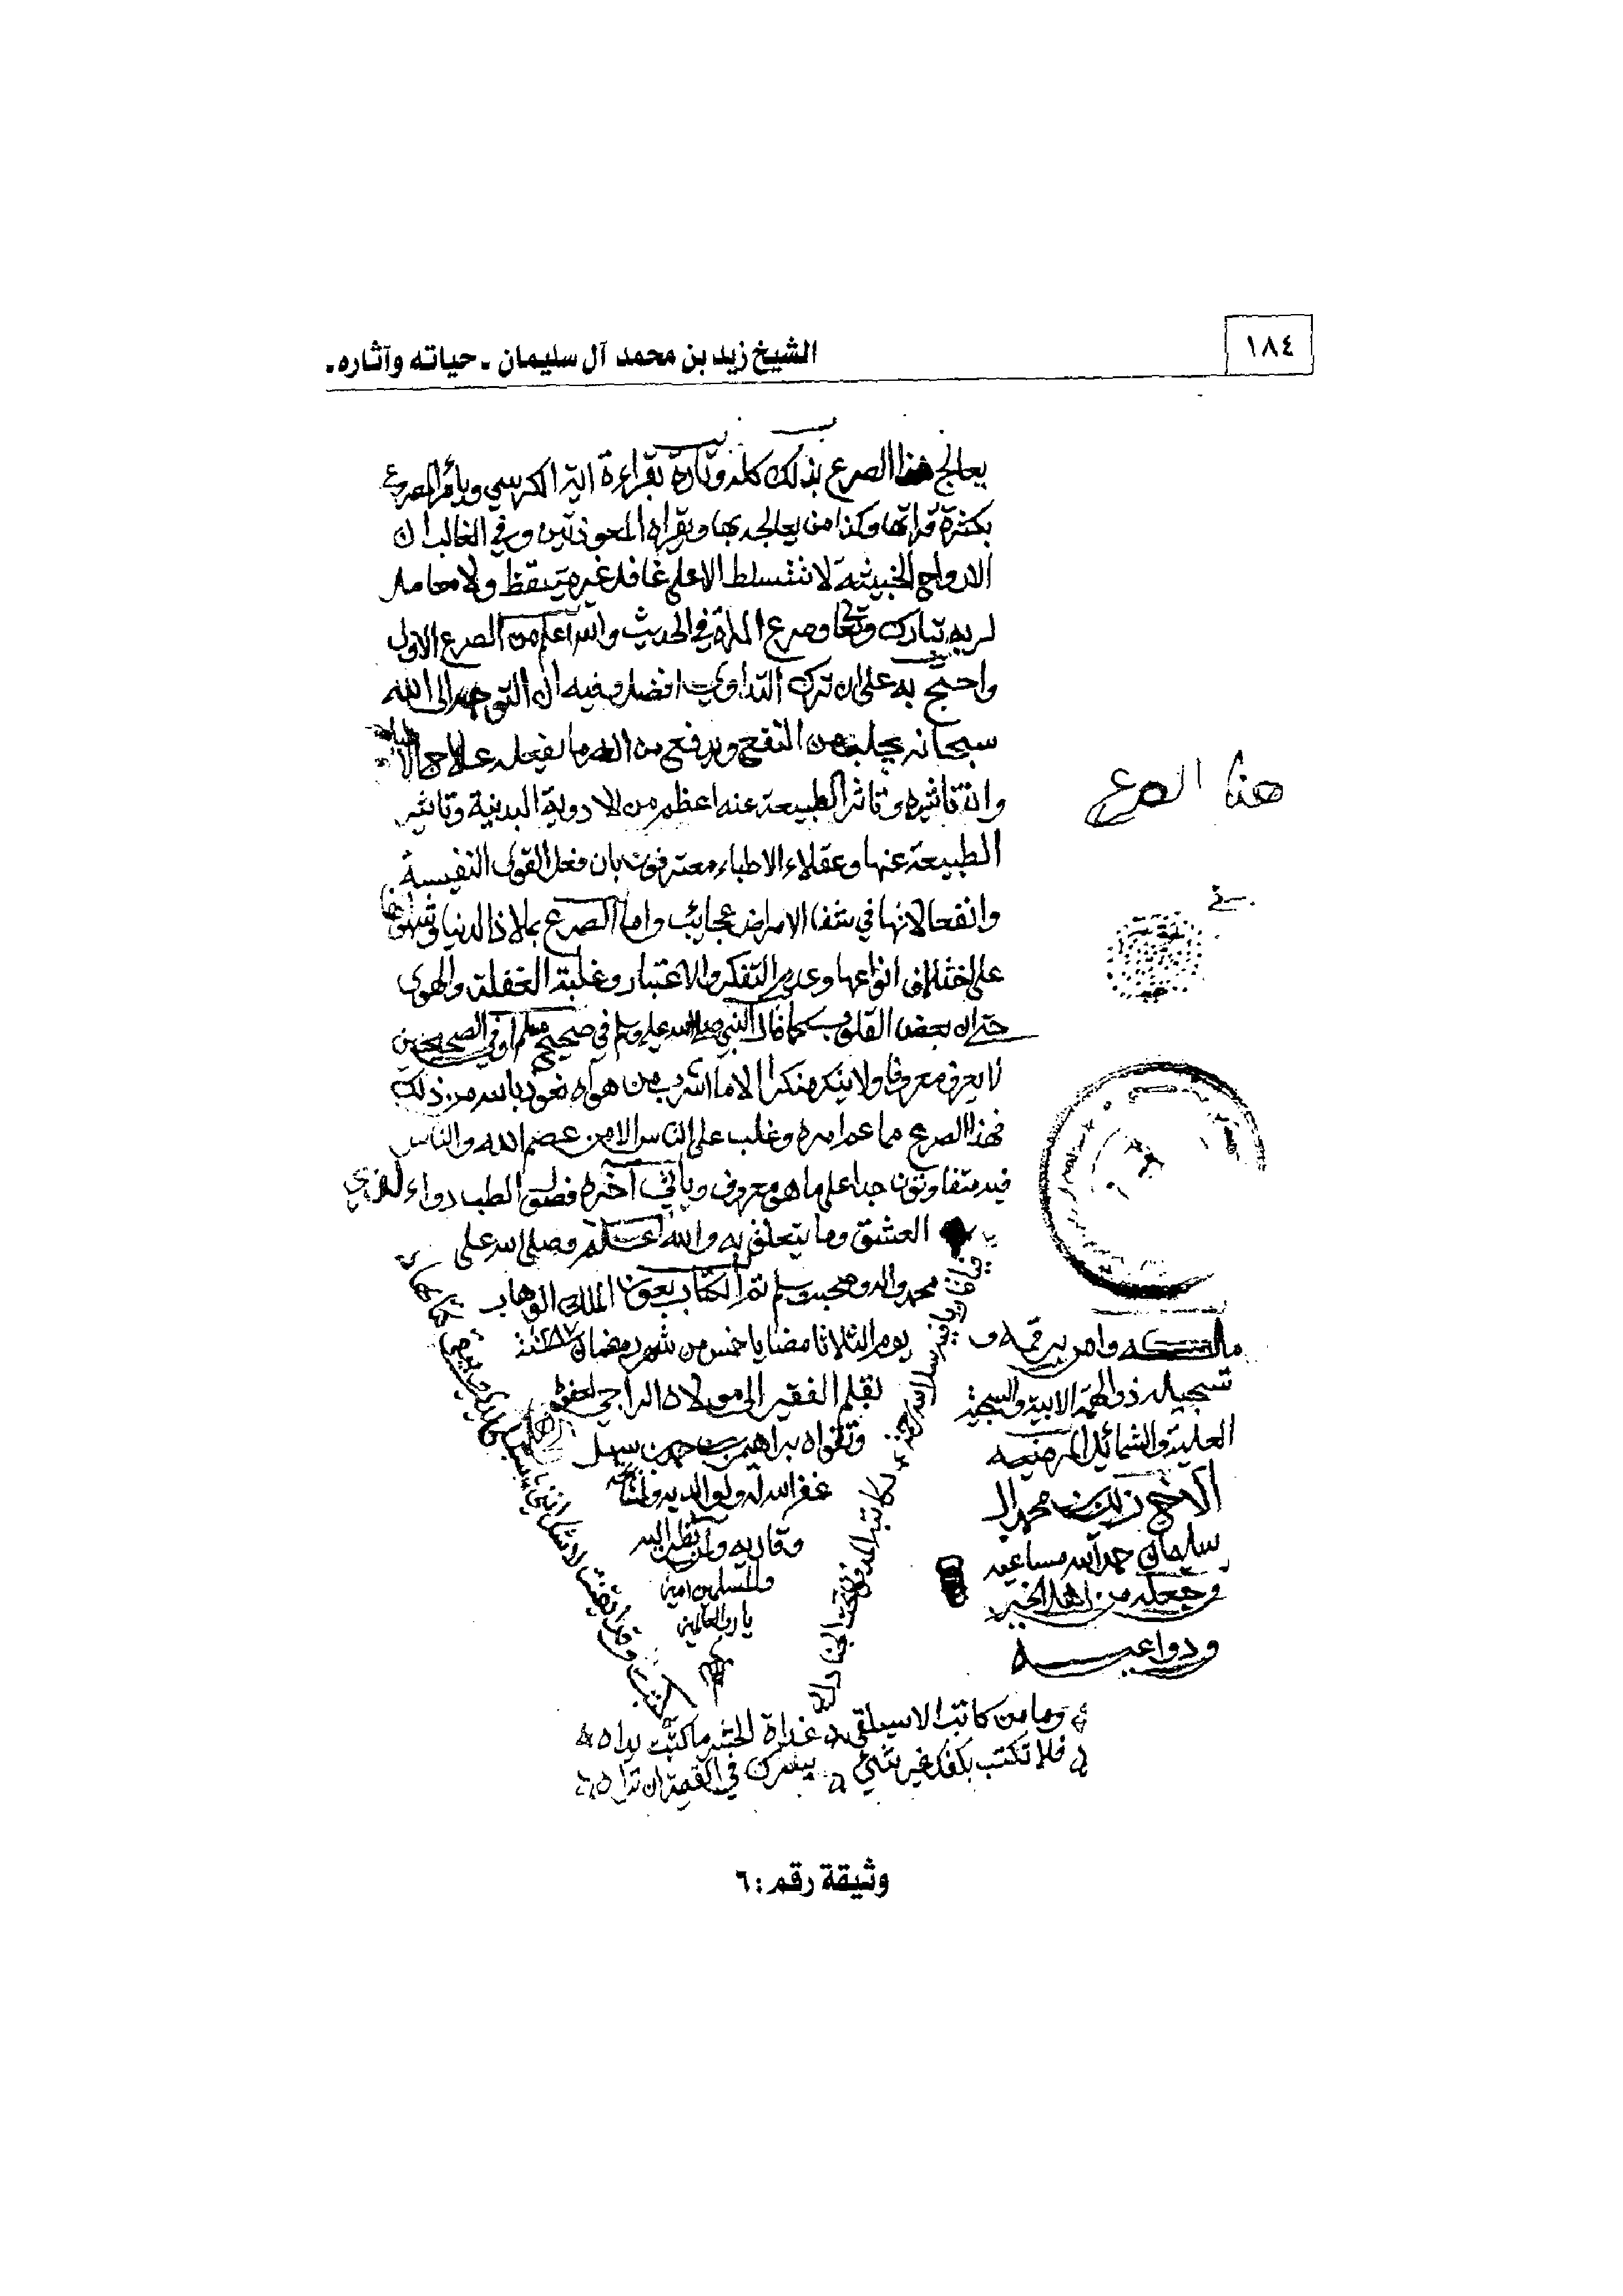 ١٨٤
الشيخ زيد بن محمد آل سليمان ـ حياته وآثاره ـ
يعالج هذا الصرع بذلك كله وتارة بقراءة اية الكرسي ويأمر المصروع
بكثرة قراتها وكذا من يعالجه بها وبقراة المعوذتين وفي الغالب ان
الارواح الخبيثة لا تتسلط الا على غافل غير متيقظ ولا معامل
لربه تبارك وتعا وصرع المراة في الحديث والله اعلم من الصرع الاول
واحتج به على ان ترك التداوي افضل وفيه ان التوجه الى الله
سبحانه يجلب من النفع ويدفع من الضر ما لا يفعله علاج الاطباء
وان تاثيره وتاثر الطبيعة عنه اعظم من الادوية البدنية وتاثير
الطبيعة عنها وعقلاء الاطباء معترفون بان فعل القوى النفيسة
وانفعالاتها في شفا الامراض عجايب واما الصرع بملاذ الدنيا وشهواتها
على اختلاف انواعها وعدم التفكر والاعتبار وغلبة الغفلة والهوى
حتى ان بعض القلوب كما قال النبي صلى الله عليه وسلم في صحيح مسلم او في الصحيحين
لا يعرف معروفا ولا ينكر منكرا الا ما اشرب من هواه نعوذ بالله من ذلك
فهذا الصرع مما عم امره وغلب على الناس الا من عصم الله والناس
فيه متفاوتون جدا على ما هو معروف وياتي اخره فصول الطب دواء
العشق وما يتعلق به والله اعلم وصلى الله على
محمد واله وصحبه وسلم تم الكتاب بعون الملك الوهاب
يوم الثلاثا مضايا خمس من شهر رمضان ١٢٨٧ سنة
بقلم الفقير الى مولاه الراجي لعفوه
وتقواه براهيم بن حمد بن سهل
غفر الله له ولوالديه ولمشايخه
وقاريه ولمن نظر اليه
وللمسلمين امين
يا رب العالمين
هذا الصرع
مالكه وامر برقمه و
تسجيله ذو الهمة الابية والسجية
العلية والشمائل المرضيه
الاخ زيد بن محمد ال
سليمان حمد الله مساعيه
وجعله من اهل الخير
ودواعيه
فيا قاريا فيه سل الله رحمة لكاتبه المدفون تحت الجنادل
كتبت وقد ايقنت لا شك انني
وما من كاتب الا سيلقى غداة الحشر ما كتبت يداه
فلا تكتب بكفك غير شيء يسرك في القيمة ان تراه
وثيقة رقم : ٦